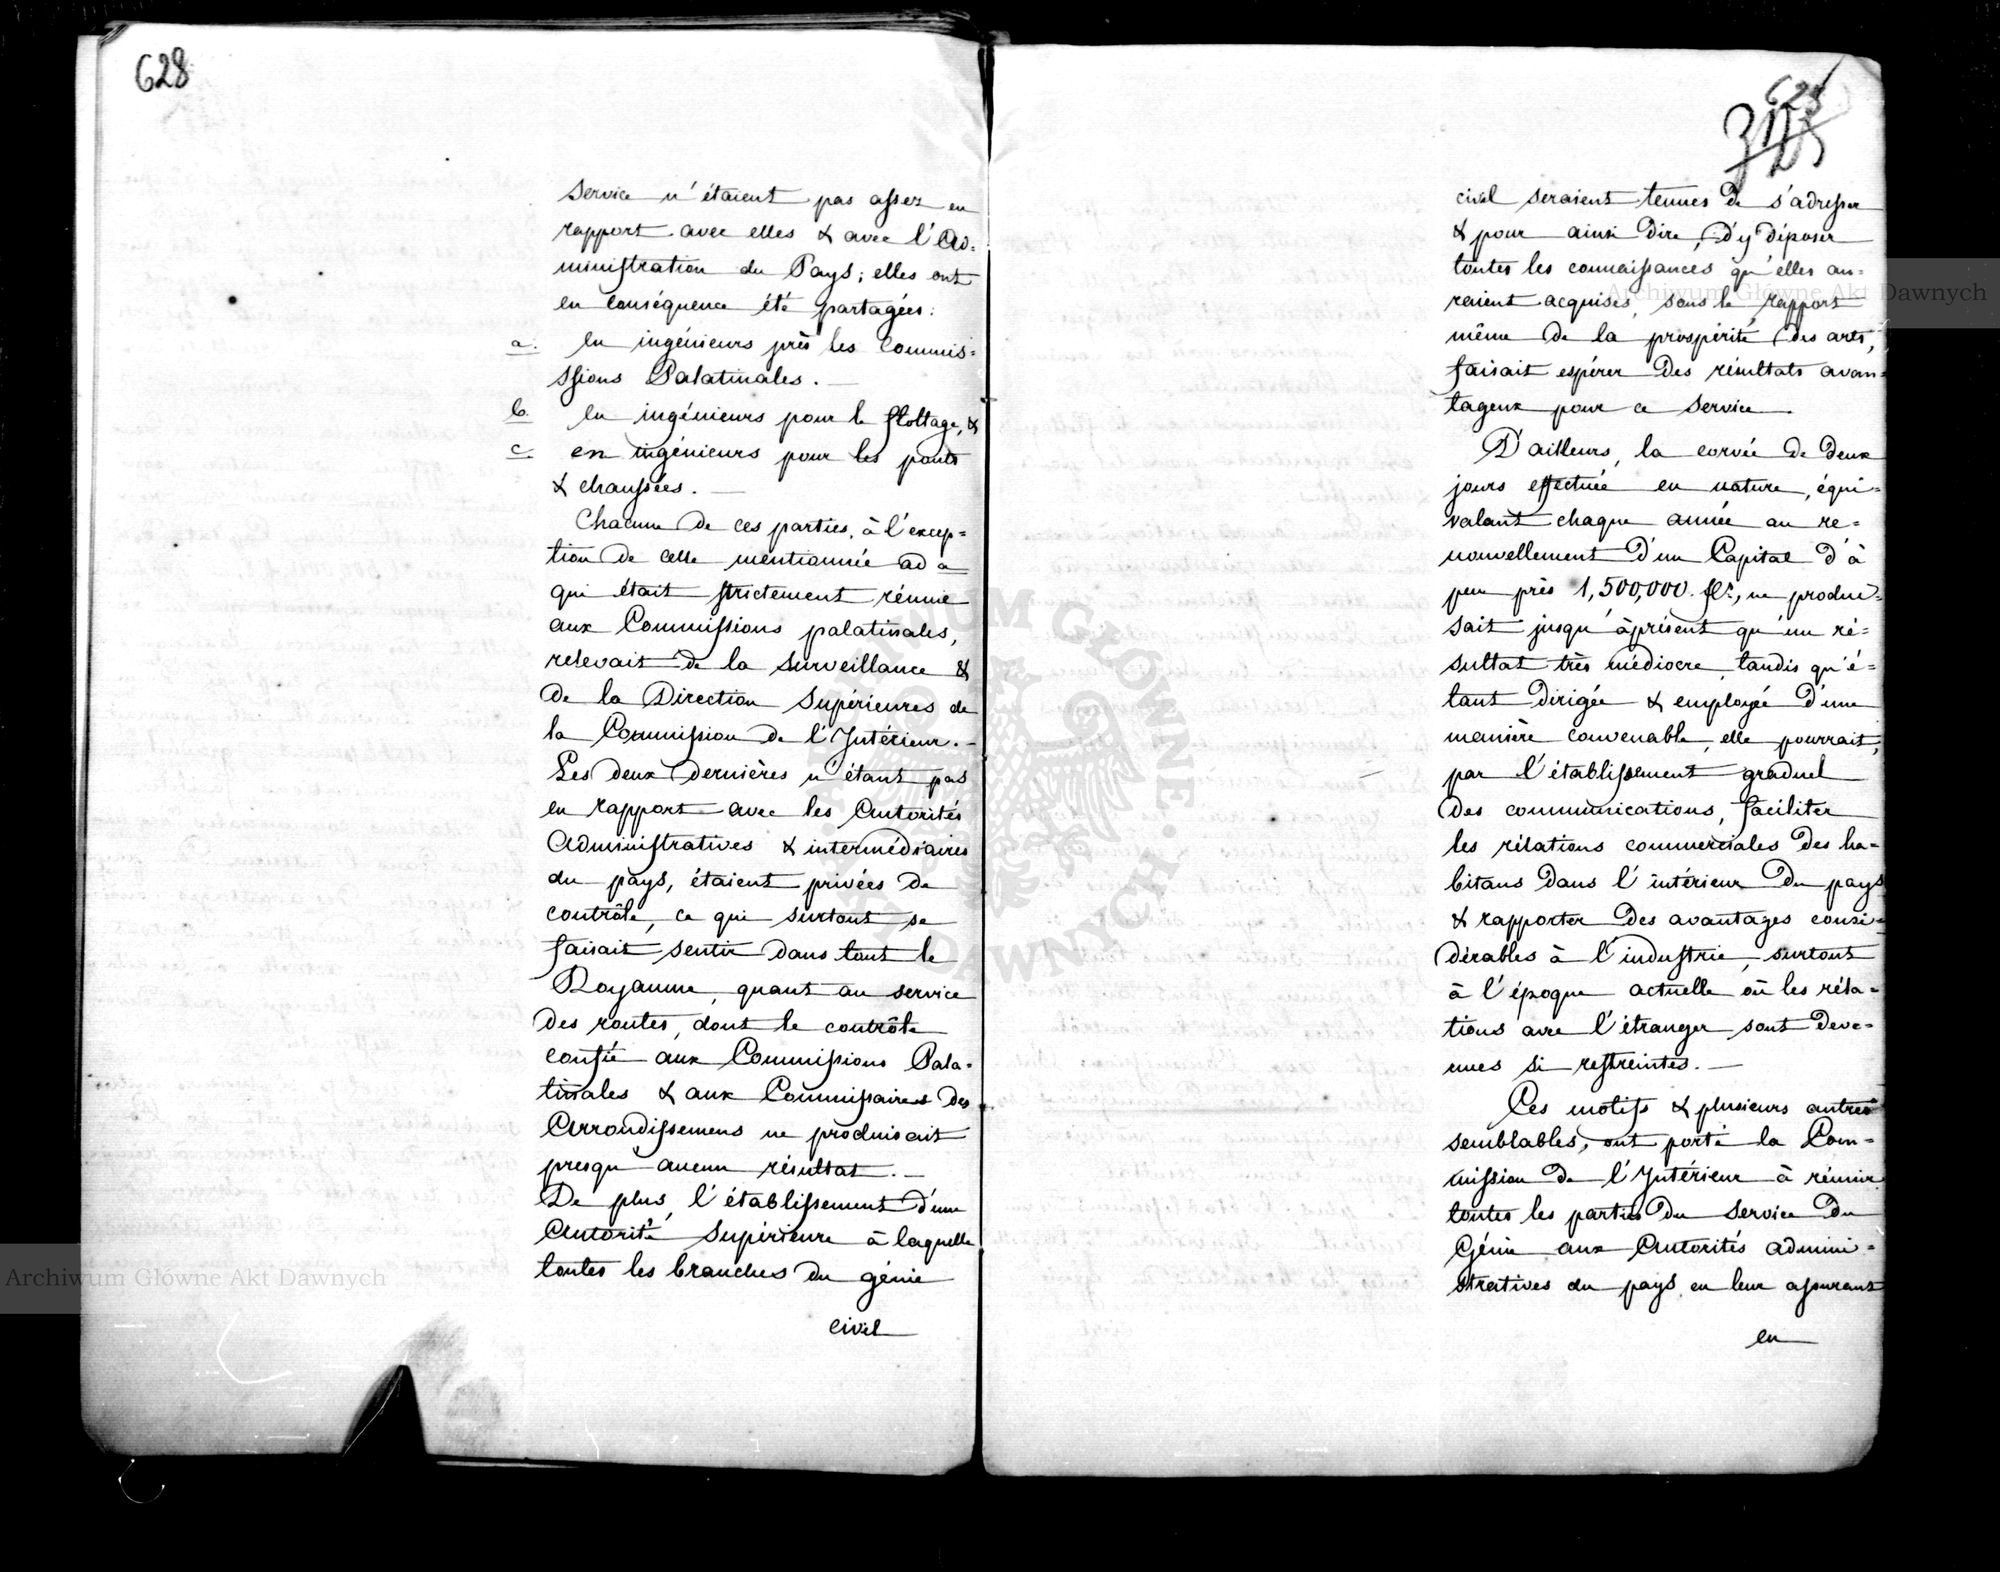 628
service n'étaient pas assez en
rapport avec elles & avec l'Ad-
ministration du Pays; elles ont
en conséquence été partagées:
a. en ingénieurs près les Commis-
ssions Palatinales. —
b. en ingénieurs pour le flottage, &
c. en ingénieurs pour les ponts
& chaussées. —
Chacune de ces parties, à l'excep-
tion de celle mentionnée ad a
qui était strictement réunie
aux Commissions palatinales,
relevait de la surveillance &
de la Direction Supérieures de
la Commission de l'Intérieur. -
Les deux dernières n'étant pas
en rapport avec les Autorités
Administratives & intermédiaires
du pays, étaient privées de
contrôle, ce qui surtout se
faisait sentir dans tout le
Royaume, quant au service
des routes, dont le contrôle
confié aux Commissions Pala-
tinales & aux Commissaires des
Arrondissemens ne produisait
presqu'aucun résultat. —
De plus, l'établissement d'une
Autorité Supérieure à laquelle
toutes les branches du génie
civil
civil seraient tenues de s'adresser
& pour ainsi dire, d'y déposer
toutes les connaissances qu'elles au-
raient acquises, sous le rapport
même de la prospérité des arts,
faisait espérer des résultats avan-
tageux pour ce service.
D'ailleurs, la corvée de deux
jours effectuée en nature, équi-
valant chaque année au re-
nouvellement d'un Capital d'à
peu près 1,500,000. flr, ne produi-
sait jusqu'àprésent qu'un ré-
sultat très médiocre, tandis qu'é-
tant dirigée & employée d'une
manière convenable, elle pourrait,
par l'établissement graduel
des communications, faciliter
les rélations commerciales des ha-
bitans dans l'intérieur du pays
& rapporter des avantages consi-
dérables à l'industrie, surtout
à l'époque actuelle où les réla-
tions avec l'étranger sont deve-
nues si restreintes. —
Ces motifs & plusieurs autres
semblables, ont porté la Com-
mission de l'Intérieur à réunir
toutes les parties du service du
Génie aux Autorités admini-
stratives du pays en leur assurant
en
Archiwum Główne Akt Dawnych
Archiwum Główne Akt Dawnych
ARCHIWUM GŁÓWNE AKT DAWNYCH